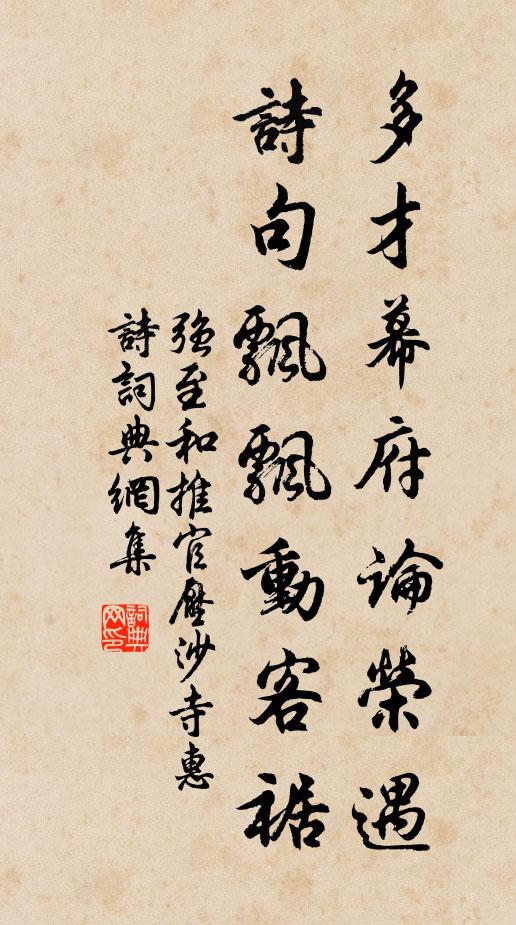 多才幕府論榮遇
詩句飄飄動客裾
強至和推官壓沙寺惠
詩詞典網集
詞典網印